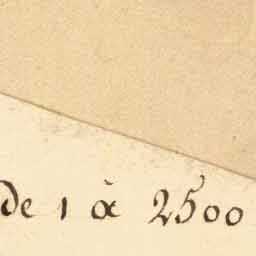 de 1 à 2500